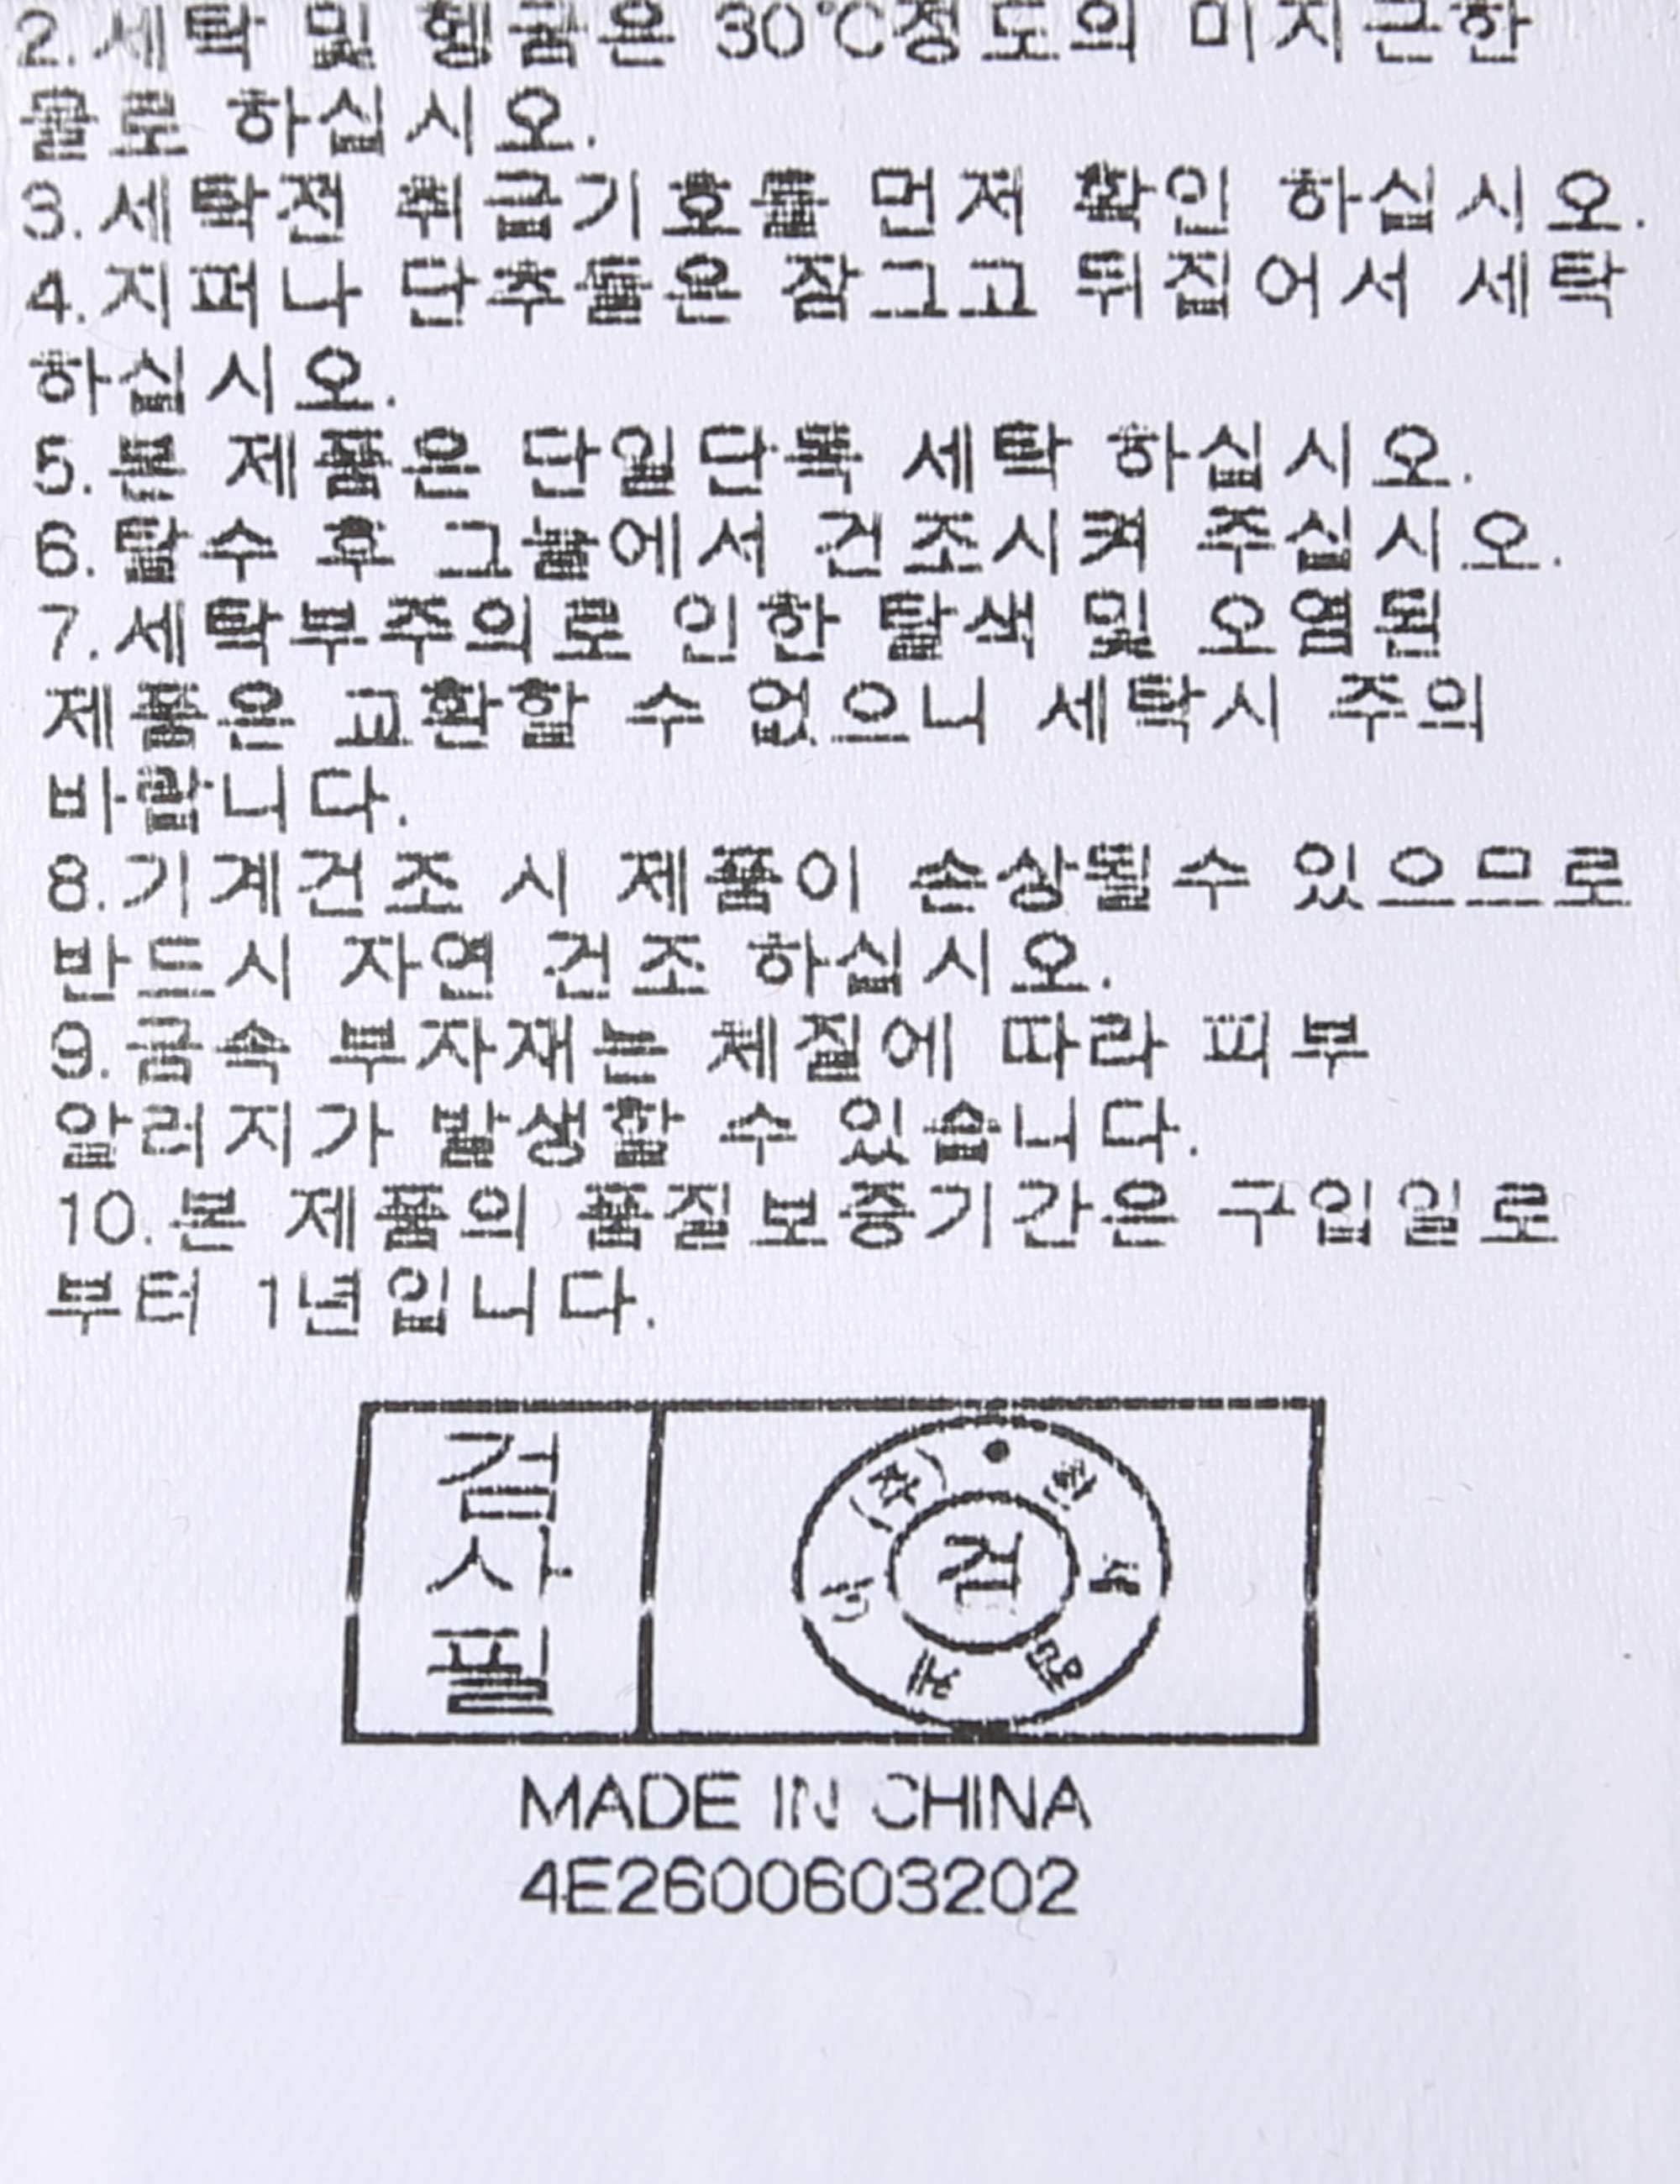 2.세탁 및 헹굼은 30℃정도의 미지근한
물로 하십시오.
3.세탁전 취급기호를 먼저 확인 하십시오.
4.지퍼나 단추들은 잠그고 뒤집어서 세탁
하십시오.
5.본 제품은 단일단독 세탁 하십시오.
6.탈수 후 그늘에서 건조시켜 주십시오.
7.세탁부주의로 인한 탈색 및 오염된
제품은 교환할 수 없으니 세탁시 주의
바랍니다.
8.기계건조 시 제품이 손상될수 있으므로
반드시 자연 건조 하십시오.
9.금속 부자재는 체질에 따라 피부
알러지가 발생할 수 있습니다.
10.본 제품의 품질보증기간은 구입일로
부터 1년입니다.
검사필
검
MADE IN CHINA
4E2600603202